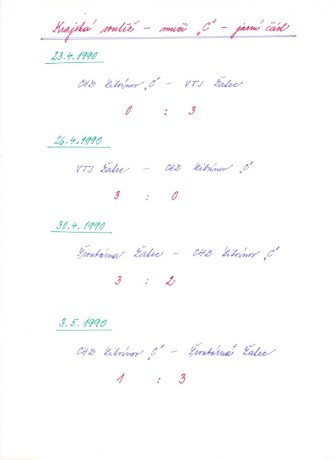 Krajská soutěž - muži "C" - jarní část
23.4.1990
CHZ Litvínov "C" - VTJ Žatec
0 : 3
26.4.1990
VTJ Žatec - CHZ Litvínov "C"
3 : 0
30.4.1990
Šroubárna Žatec - CHZ Litvínov "C"
3 : 2
3.5.1990
CHZ Litvínov "C" - Šroubárna Žatec
1 : 3